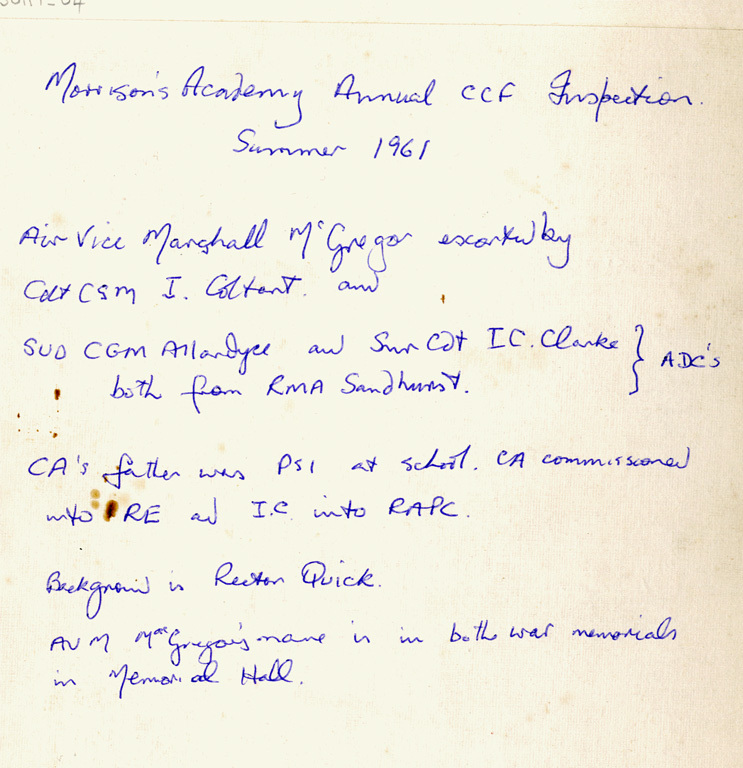 Morrison's Academy Annual CCF Inspection.
Summer 1961
Air Vice Marshall McGregor escorted by
Cdt CSM I. Coltart. and
SUO CGM Allardyce and Snr Cdt I.C. Clarke } ADC's
both from RMA Sandhurst.
CA's father was PSI at school. CA commissioned
into RE and I.C. into RAPC.
Background is Rector Quick.
AVM MacGregor's name is in both war memorials
in Memorial Hall.